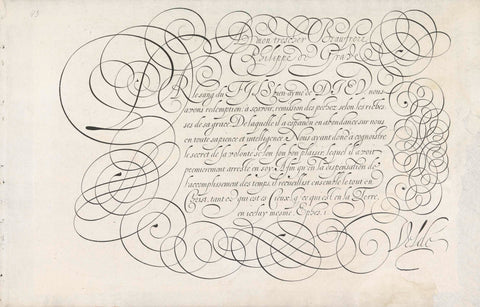 A mon trescher Beaufrere
Philippe de
Par le sang du FILS bien aymé de DIEU, nous
avons redemption: a sçavoir, remission des pechez selon les riches
ses de sa grace. De laquelle il a espandu en abondance sur nous
en toute sapience et intelligence. Nous ayant donné a cognoistre
le secret de sa volonté selon son bon plaisir lequel il avoit
premierement arresté en soy. Afin qu'en la dispensation de
l'accomplissement des temps, il recueillist ensemble le tout en
Christ, tant ce qui est es Cieux, que ce qui est en la Terre,
en iceluy mesme Ephes. 1
Velde